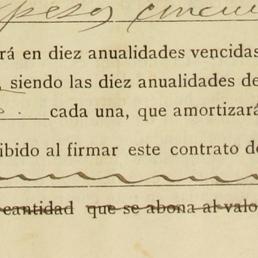 pesos cincu
rá en diez anualidades vencidas
siendo las diez anualidades de
cada una, que amortizará
ibido al firmar este contrato de
cantidad que se abona al valo